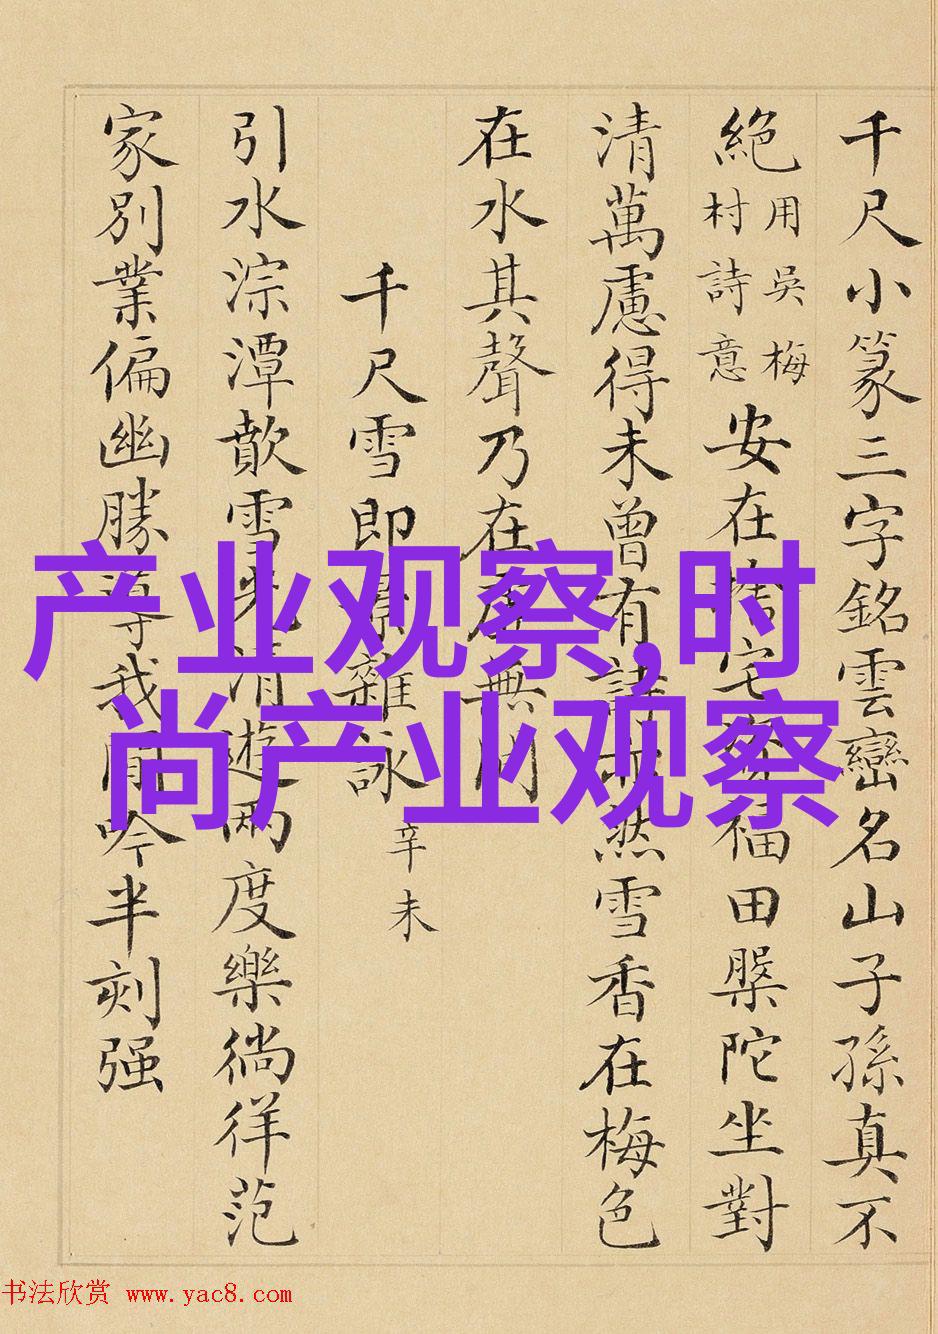 千尺小篆三字銘雲巒名山子孫真不
絕用吳梅村詩意安在捨宅資福田槃陀坐對
清萬慮得未曾有詩亦然雪香在梅色
在水其聲乃在虛無間
千尺雪即景雜詠辛未
引水淙潭歕雪光清遊兩度樂徜徉范
家別業偏幽勝導我閒吟半刻强
产业观察,时
尚产业观察
书法欣赏 www.yac8.com